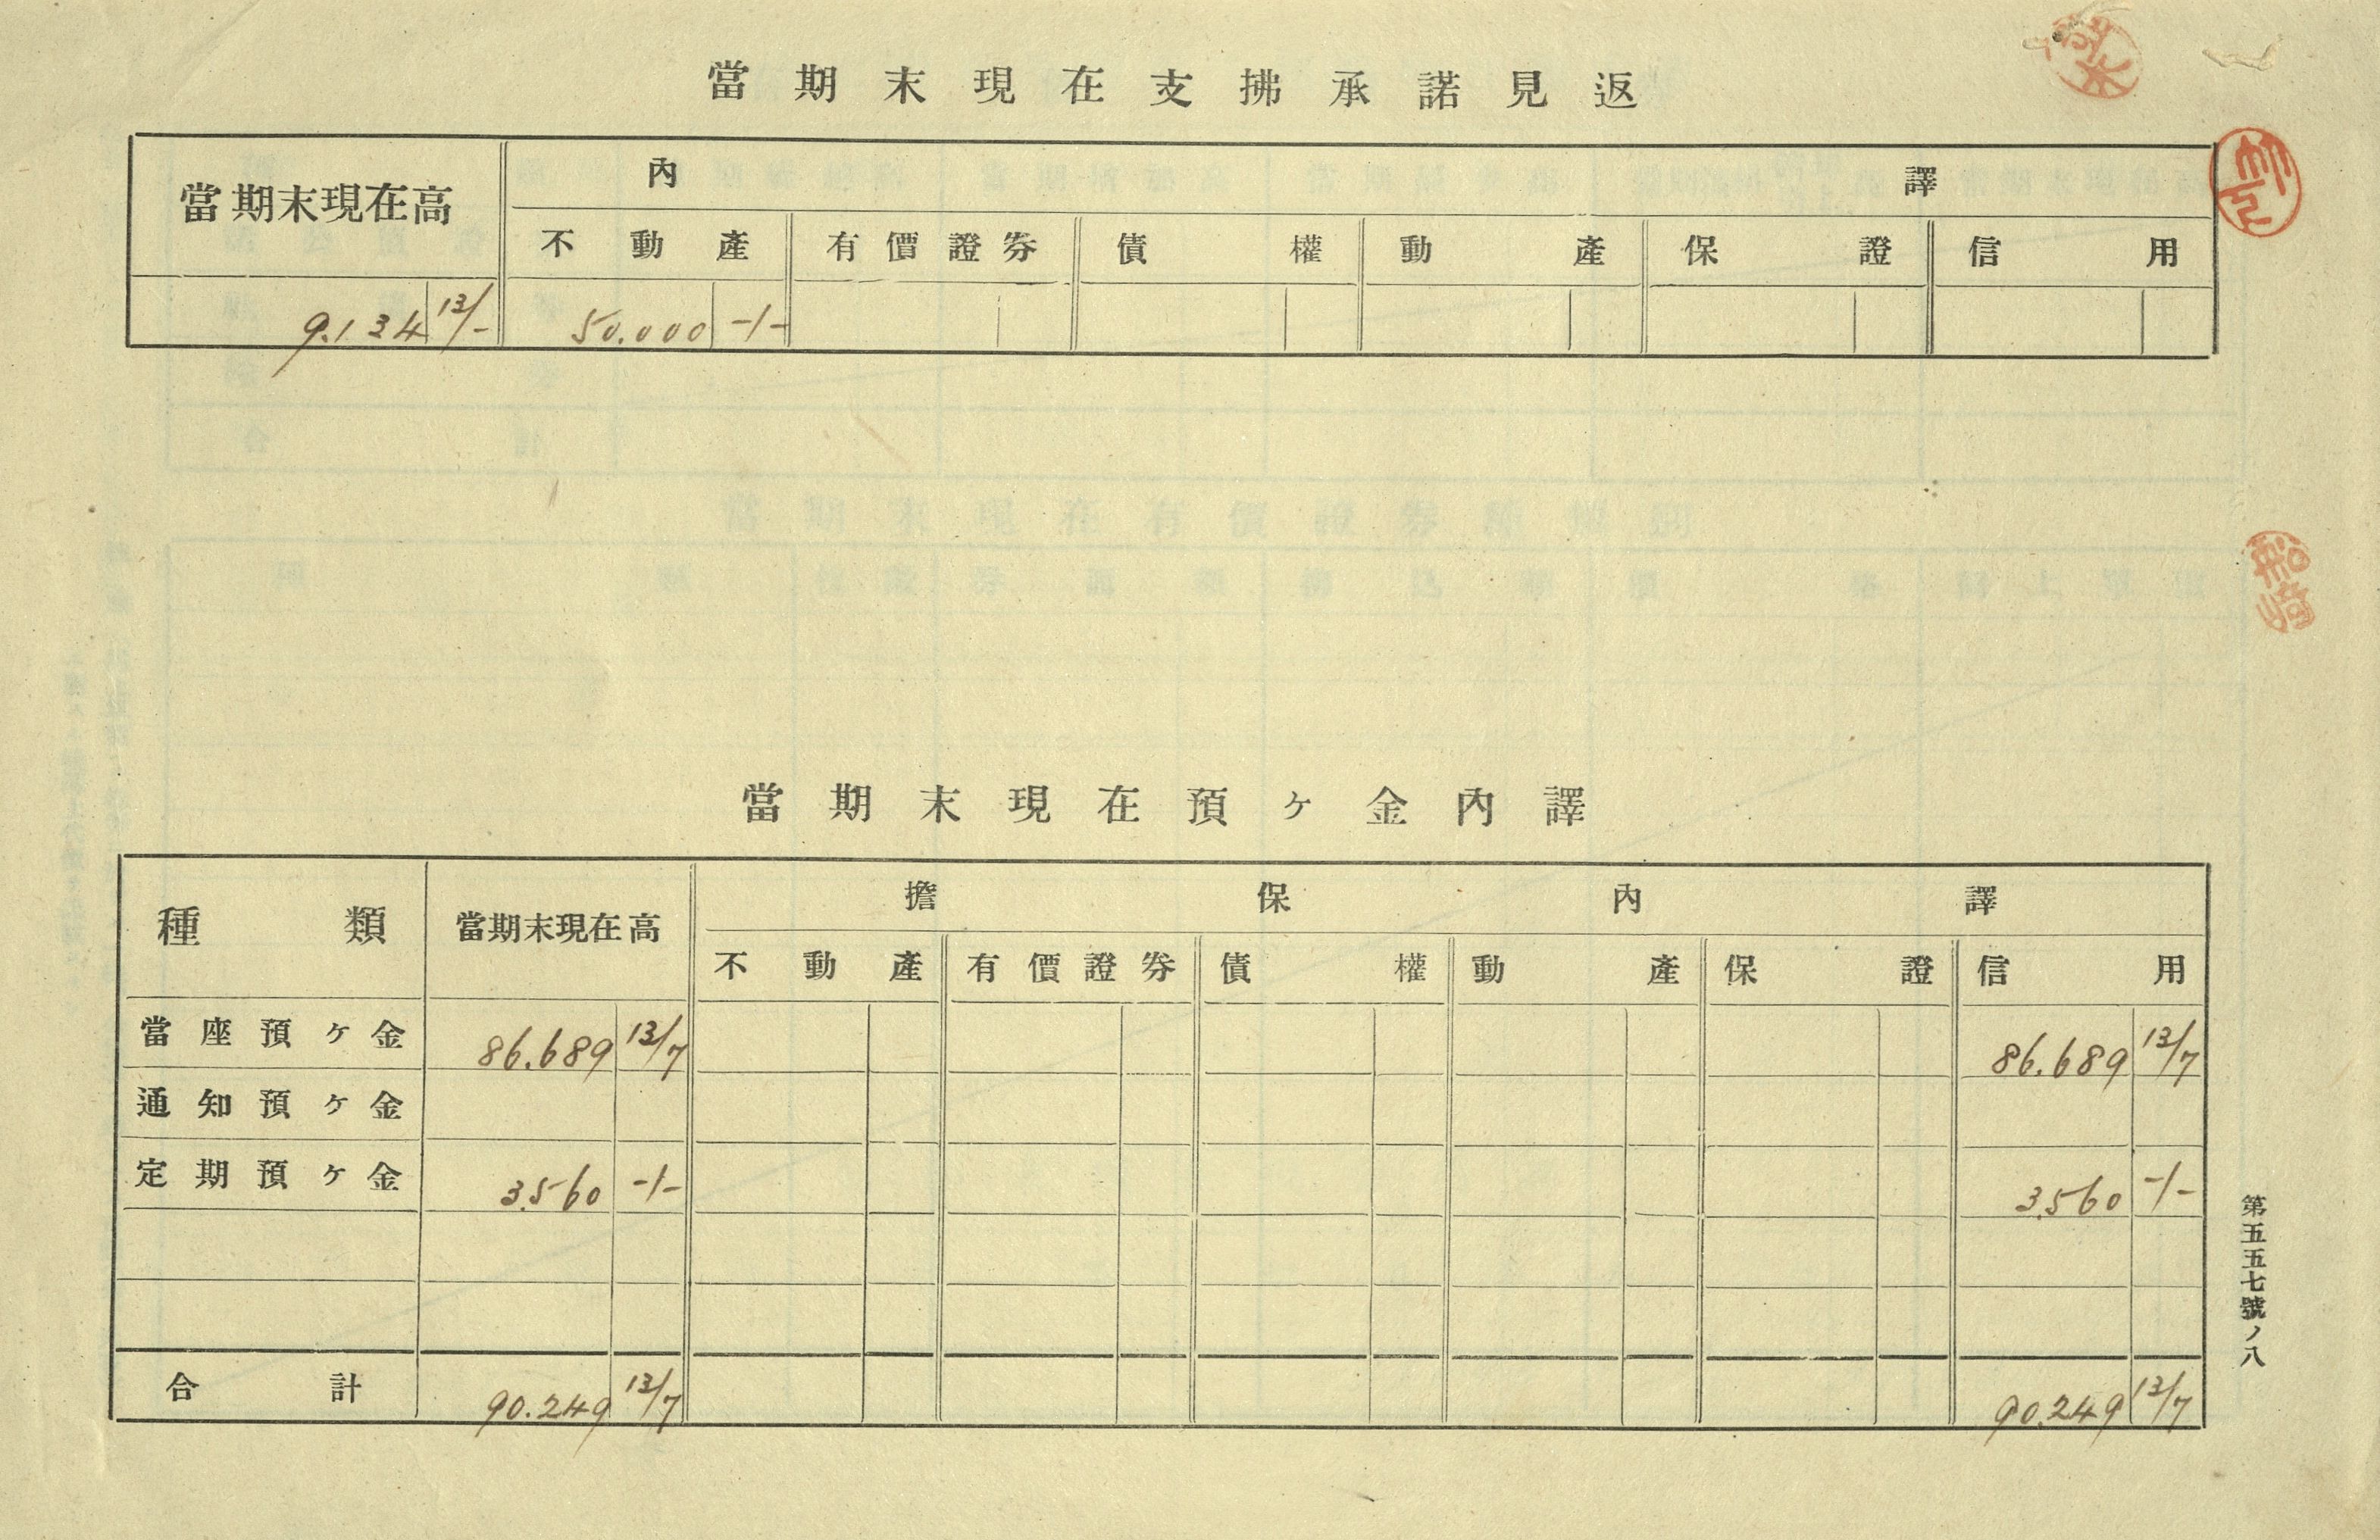 當期末現在支拂承諾見返
當期末現在高 內譯
不動產 有價證券 債權 動產 保證 信用
9.134 13/- 50.000 -/-
當期末現在預ヶ金內譯
種類 當期末現在高 擔保內譯
不動產 有價證券 債權 動產 保證 信用
當座預ヶ金 86.689 13/7 86.689 13/7
通知預ヶ金
定期預ヶ金 3.560 -/- 3.560 -/-
合計 90.249 13/7 90.249 13/7
第五五七號ノ八